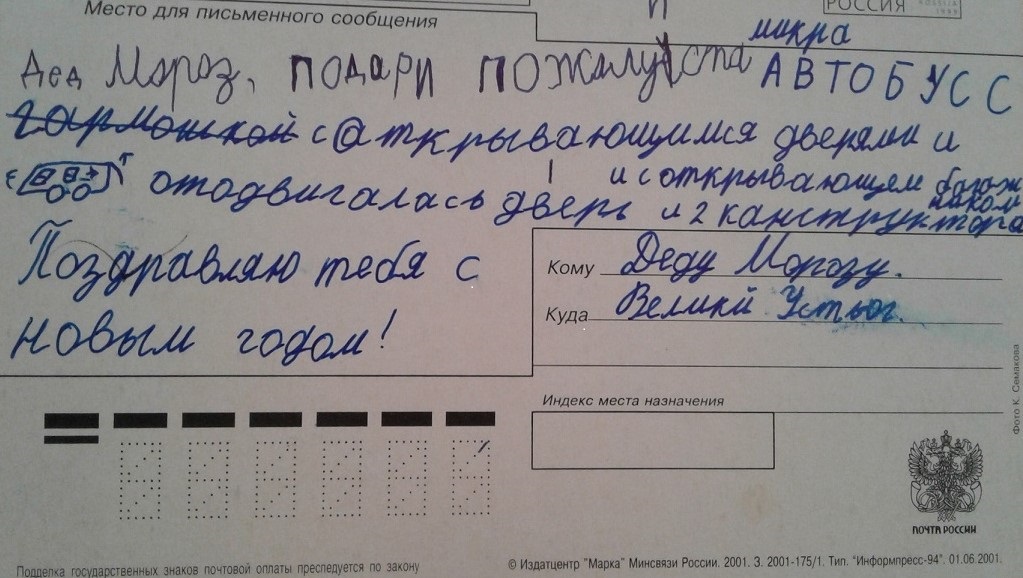 РОССИЯ
Место для письменного сообщения
микра
Дед Мороз, подари пожалуйста АВТОБУСС
гармошкой с аткрывающимися дверями и
и с открывающем багаж
ником
отодвигалась дверь и 2 канструктора
Поздравляю тебя с
новым годом!
Кому Деду Морозу.
Куда Великй Устьюг.
Индекс места назначения
Фото К. Семакова
ПОЧТА РОССИИ
Подделка государственных знаков почтовой оплаты преследуется по закону
© Издатцентр "Марка" Минсвязи России. 2001. З. 2001-175/1. Тип. "Информпресс-94". 01.06.2001.